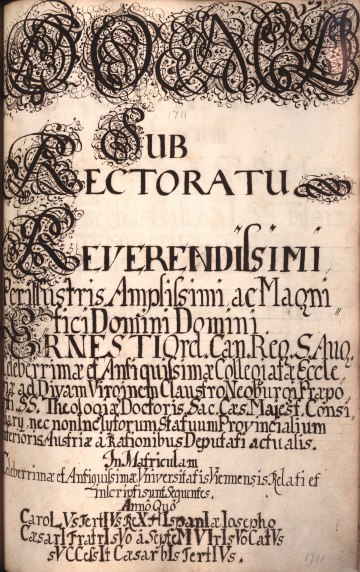 1711
SUB
RECTORATU
REVERENDISSIMI
Perillustris, Amplissimi, ac Magni
fici Domini Domini
ERNESTI Ord. Can. Reg. S. Aug.
Celeberrimæ et Antiquissimæ Collegiatæ Eccle
ad Divam Virginem Claustro Neoburgi Præpo
siti. SS. Theologiæ Doctoris, Sac. Cæs. Majest. Consi
liarÿ, nec non Inclytorum Statuum Provincialium
inferioris Austriæ à Rationibus Deputati actualis.
In Matriculam
Celeberrimæ et Antiquissimæ Universitatis Viennensis Relati et
inscripti sunt Sequentes.
Anno Quo
CaroLVs TertIVs ReX HIspanIæ Iosepho
CæsarI FratrI sVo à septeMVIrIs VoCatVs
sVCCessIt Cæsar bIs TertIVs.
1711